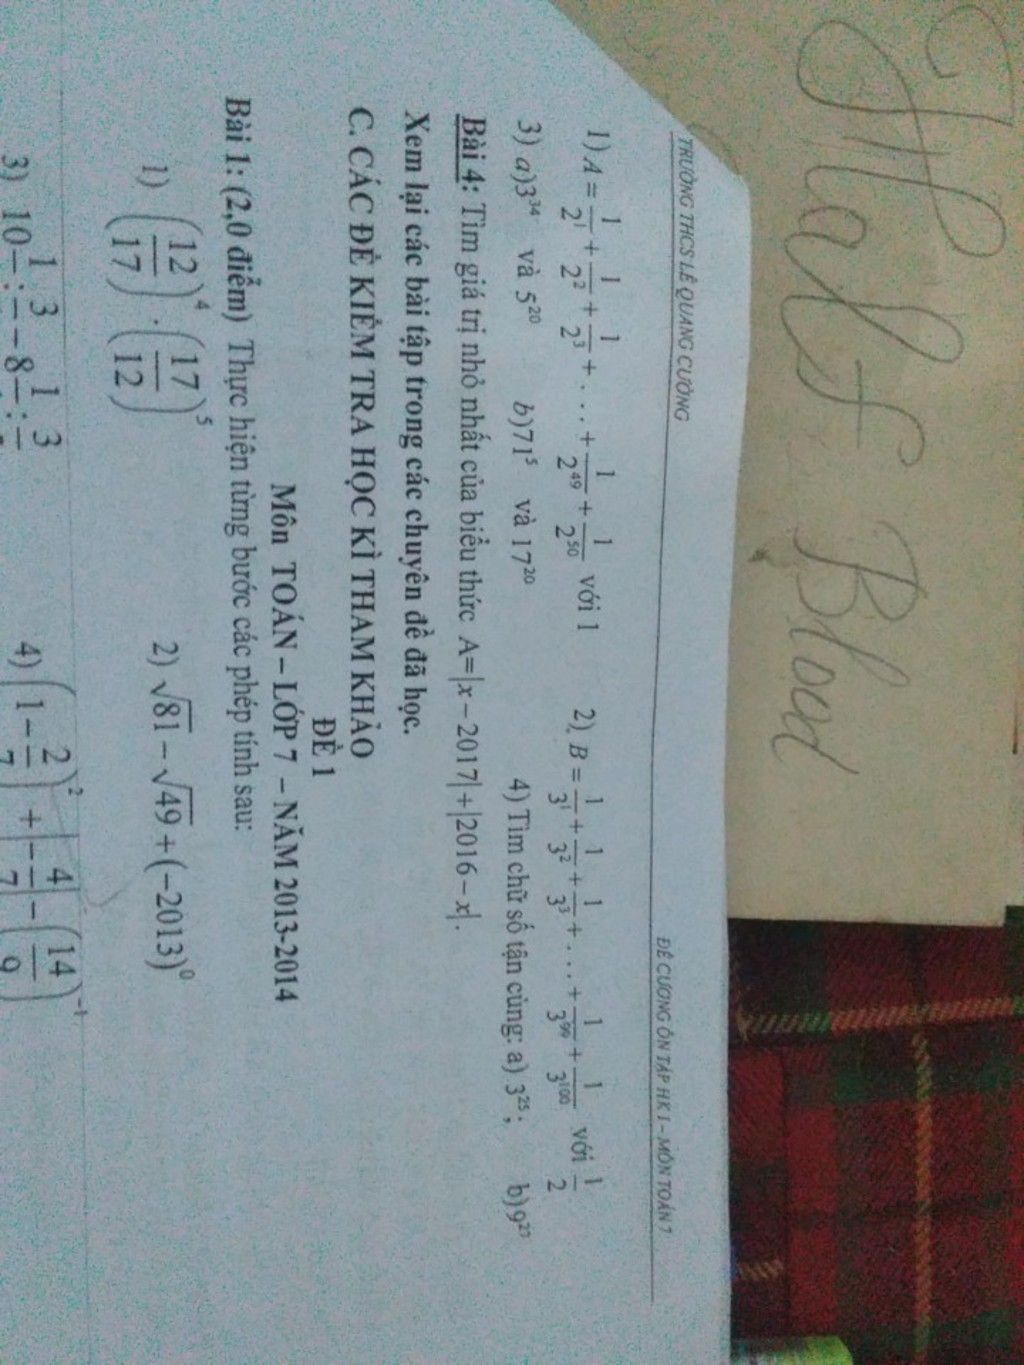 Half Blood
TRƯỜNG THCS LÊ QUANG CƯỜNG ĐỀ CƯƠNG ÔN TẬP HK I – MÔN TOÁN 7
1) A = 1/2¹ + 1/2² + 1/2³ + ... + 1/2⁴⁹ + 1/2⁵⁰ với 1 2) B = 1/3¹ + 1/3² + 1/3³ + ... + 1/3⁹⁹ + 1/3¹⁰⁰ với 1/2
3) a)3³⁴ và 5²⁰ b)71⁵ và 17²⁰ 4) Tìm chữ số tận cùng: a) 3²⁵; b)9²⁷
Bài 4: Tìm giá trị nhỏ nhất của biểu thức A=|x – 2017|+|2016 – x|.
Xem lại các bài tập trong các chuyên đề đã học.
C. CÁC ĐỀ KIỂM TRA HỌC KÌ THAM KHẢO
ĐỀ 1
Môn TOÁN – LỚP 7 – NĂM 2013-2014
Bài 1: (2,0 điểm) Thực hiện từng bước các phép tính sau:
1) (12/17)⁴ . (17/12)⁵ 2) √81 – √49 + (–2013)⁰
3) 10 1/ : 3/ – 8 1/ : 3/ 4) (1 – 2/7)² + |– 4/7| – (14/9)⁻¹